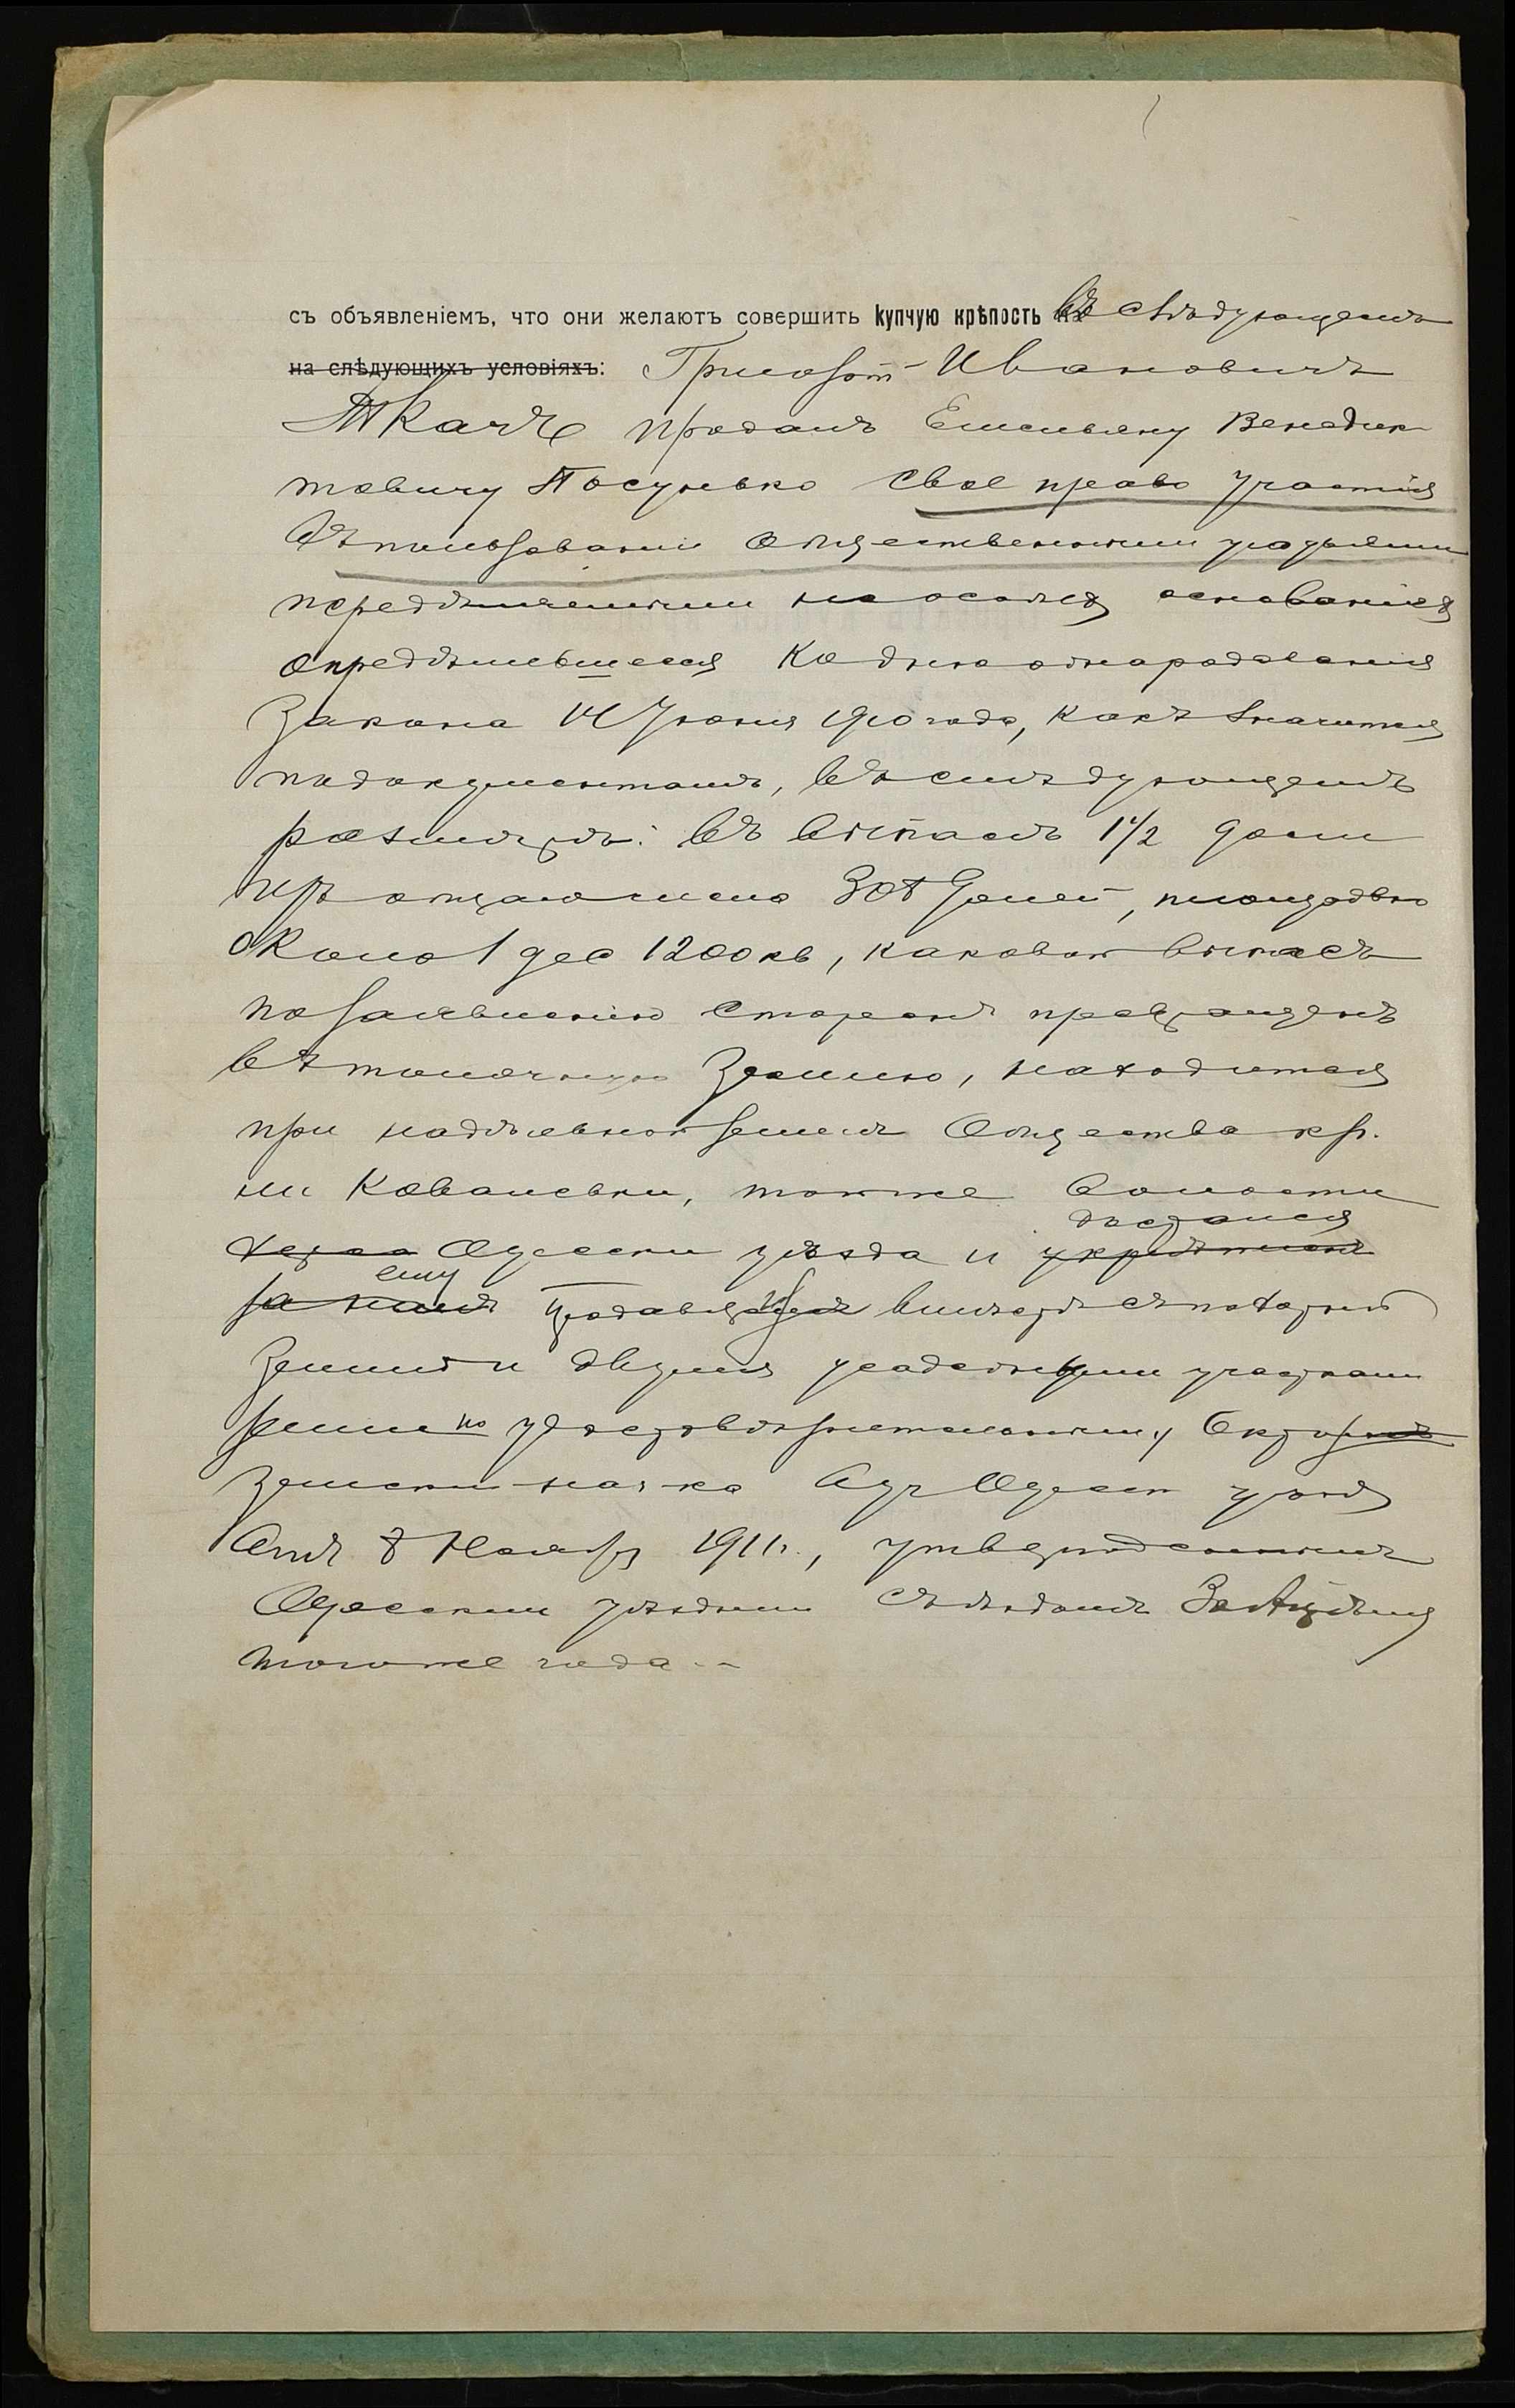 съ объявленіемъ, что они желаютъ совершить купчую крѣпость въ слѣдующемъ
на слѣдующихъ условіяхъ: Григорій Ивановичъ
Ткачъ продалъ Емельяну Венедик
товичу Посунько свое право участія
въ пользованіи общественными угодьями
передѣляемыми на особыхъ основаніяхъ
опредѣлившееся ко дню обнародованія
Закона 14 Іюня 1910 года, какъ значится
по документамъ, въ слѣдующемъ
размѣрѣ: въ выпасѣ 1 1/2 доли
изъ общаго числа 308 долей, площадью
около 1 дес 1200 кв, каковой выпасъ
по заявленію сторонъ превращенъ
въ толочную Землю, находится
при надѣльной землѣ Общества кр.
Ковалевки, той же волости
Одесск уѣзда и укрѣплено
досталися
за нимъ
ему
вмѣстѣ съ пахотной
Землей и двумя усадебными участками
земли по удостовѣрительному
Земск нач-ка Одесск уѣзда
отъ 8 Ноября 1911 г., утвержденнымъ
Одесскимъ уѣзднымъ съѣздомъ
того же года